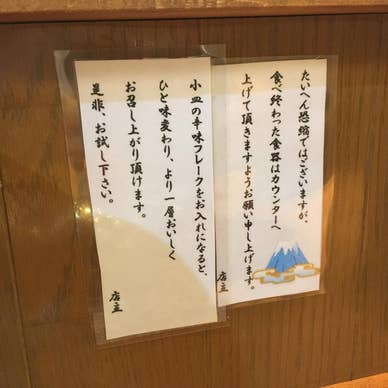 たいへん恐縮ではございますが、
食べ終わった食器はカウンターへ
上げて頂きますようお願い申し上げます。
店主
小皿の辛味フレークをお入れになると、
ひと味変わり、より一層おいしく
お召し上がり頂けます。
是非、お試し下さい。
店主